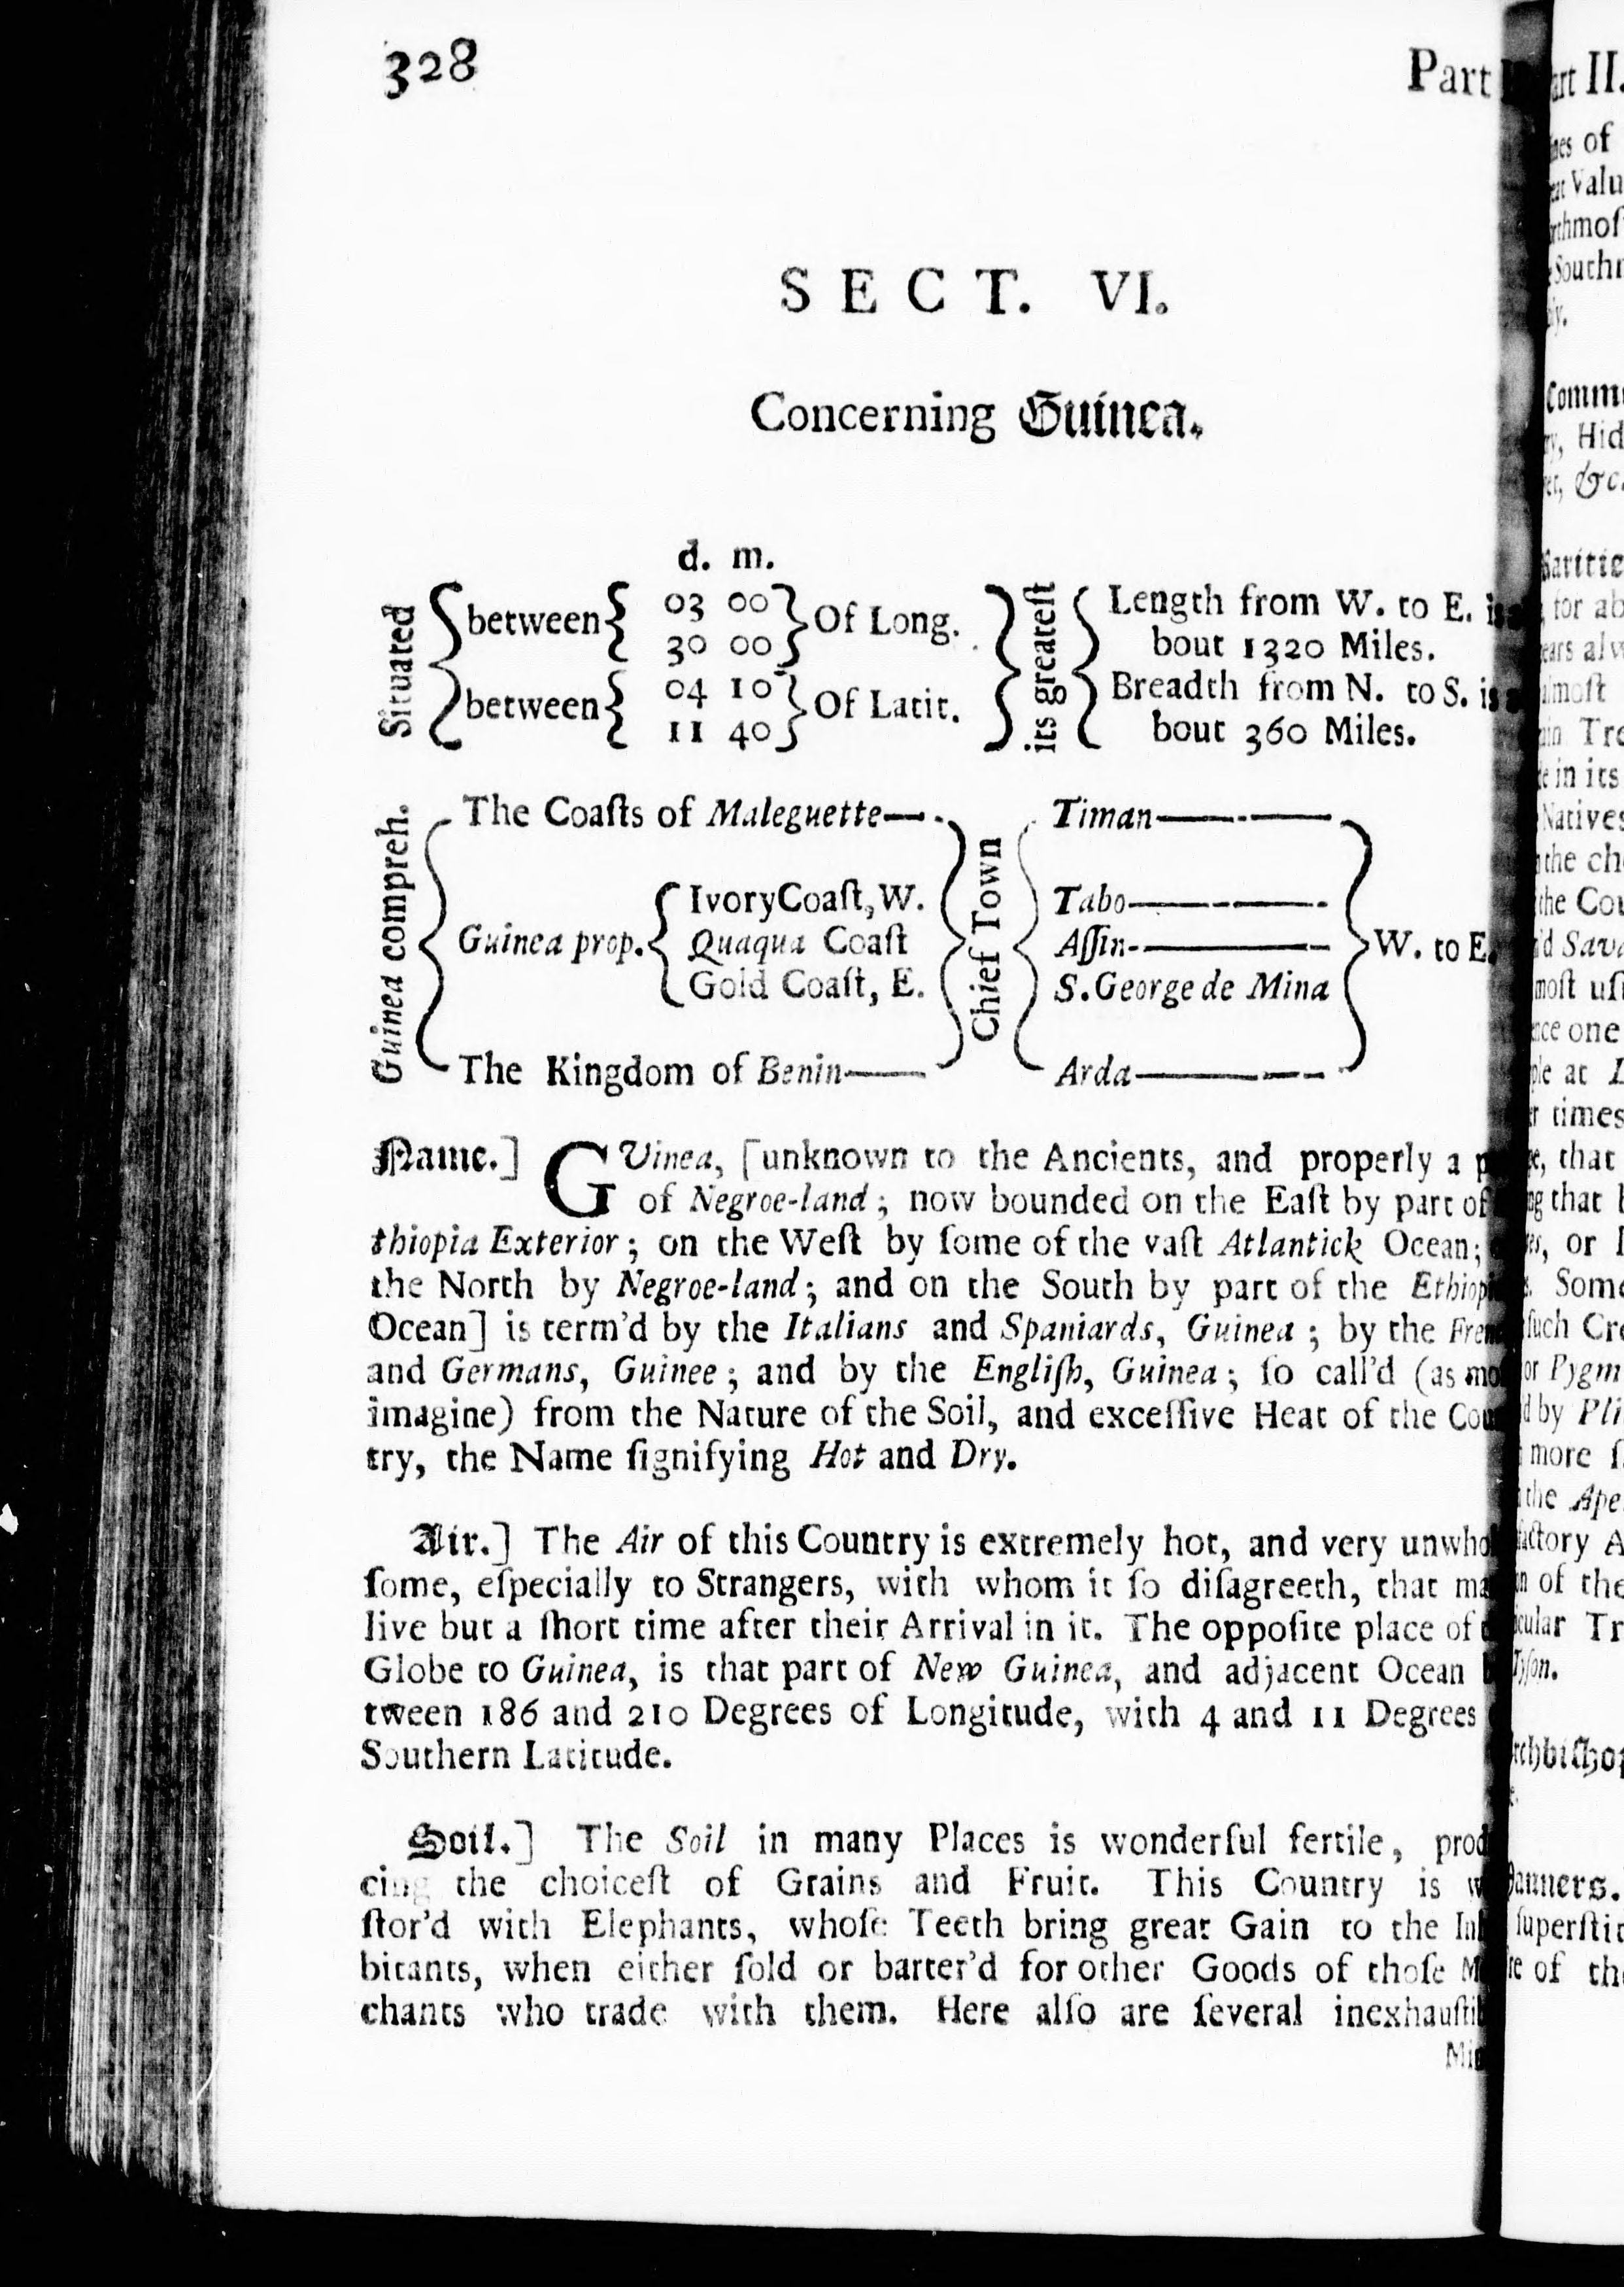 328
Part
SECT. VI.
Concerning Guinea.
d. m.
Situated between 03 00 30 00 Of Long.
between 04 10 11 40 Of Latit.
its greatest
Length from W. to E. is
bout 1320 Miles.
Breadth from N. to S. is
bout 360 Miles.
Guinea compreh.
The Coaſts of Maleguette
Guinea prop.
IvoryCoaſt, W.
Quaqua Coaſt
Gold Coaſt, E.
The Kingdom of Benin
Chief Town
Timan
Tabo
Aſſin
S. George de Mina
Arda
W. to E.
Name.] GUinea, [unknown to the Ancients, and properly a
of Negroe-land; now bounded on the Eaſt by part of
thiopia Exterior; on the Weſt by ſome of the vaſt Atlantick Ocean;
the North by Negroe-land; and on the South by part of the Ethiop
Ocean] is term'd by the Italians and Spaniards, Guinea; by the Fren
and Germans, Guinee; and by the Engliſh, Guinea; ſo call'd (as mo
imagine) from the Nature of the Soil, and exceſſive Heat of the Cou
try, the Name ſignifying Hot and Dry.
Air.] The Air of this Country is extremely hot, and very unwho
ſome, eſpecially to Strangers, with whom it ſo diſagreeth, that ma
live but a ſhort time after their Arrival in it. The oppoſite place of
Globe to Guinea, is that part of New Guinea, and adjacent Ocean
tween 186 and 210 Degrees of Longitude, with 4 and 11 Degrees
Southern Latitude.
Soil.] The Soil in many Places is wonderful fertile, prod
cing the choiceſt of Grains and Fruit. This Country is w
ſtor'd with Elephants, whoſe Teeth bring great Gain to the In
bitants, when either ſold or barter'd for other Goods of thoſe M
chants who trade with them. Here alſo are ſeveral inexhauſti
Min
art II.
of
Valu
rthmoſ
Comm
Hid
&c.
for ab
almoſt
Tre
in its
Natives
the
the Cou
Sava
moſt uſ
one
at
times
that
that
or
Some
ſuch Cr
or Pygm
by Pli
more
the Ape
of the
Tr
Tyſon.
Manners.
ſuperſtit
of th